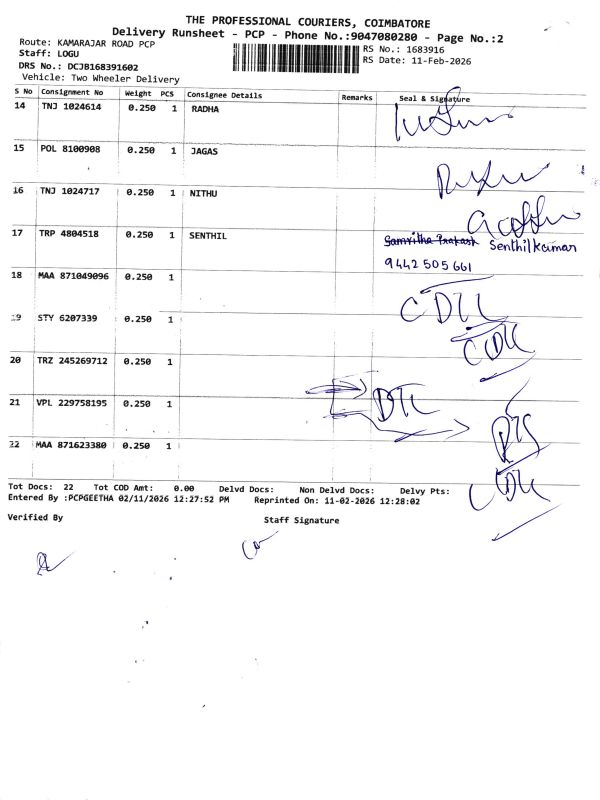 THE PROFESSIONAL COURIERS, COIMBATORE
Delivery Runsheet - PCP - Phone No.:9047080280 - Page No.:2
Route: KAMARAJAR ROAD PCP
RS No.: 1683916
Staff: LOGU
RS Date: 11-Feb-2026
DRS No.: DCJB168391602
Vehicle: Two Wheeler Delivery
S No Consignment No Weight PCS Consignee Details Remarks Seal & Signature
14 TNJ 1024614 0.250 1 RADHA
15 POL 8100908 0.250 1 JAGAS
16 TNJ 1024717 0.250 1 NITHU
17 TRP 4804518 0.250 1 SENTHIL
Samritha Prakash Senthilkumar
9442 505 661
18 MAA 871049096 0.250 1
19 STY 6207339 0.250 1
20 TRZ 245269712 0.250 1
21 VPL 229758195 0.250 1
22 MAA 871623380 0.250 1
Tot Docs: 22 Tot COD Amt: 0.00 Delvd Docs: Non Delvd Docs: Delvy Pts:
Entered By :PCPGEETHA 02/11/2026 12:27:52 PM Reprinted On: 11-02-2026 12:28:02
Verified By
Staff Signature